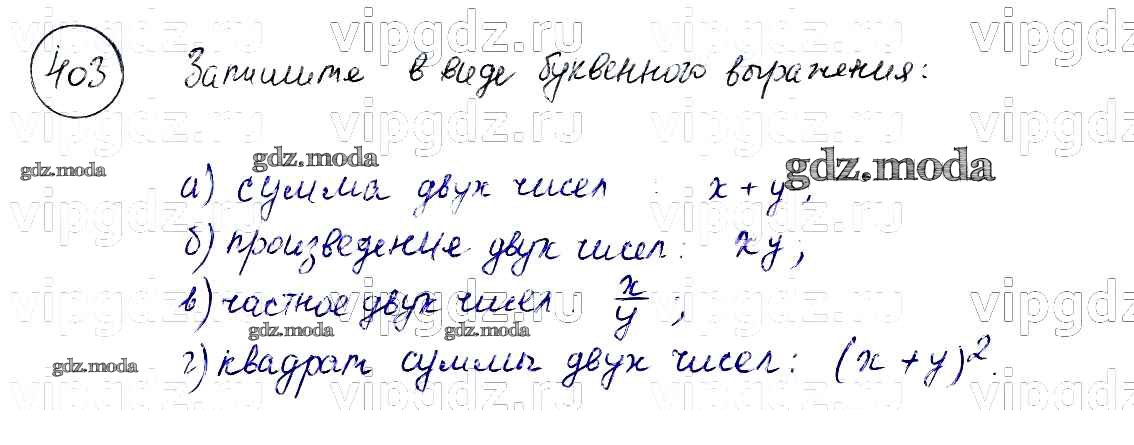 vipgdz.ru vipgdz.ru vipgdz.ru vipgdz
403 Запишите в виде буквенного выражения:
vipgdz.ru vipgdz.ru vipgdz.ru vipgdz
gdz.moda gdz.moda gdz.moda
а) сумма двух чисел : x + y;
vipgdz.ru vipgdz.ru vipgdz.ru vipgdz
б) произведение двух чисел: xy;
в) частное двух чисел: x/y;
vipgdz.ru vipgdz.ru vipgdz.ru vipgdz
gdz.moda gdz.moda
г) квадрат суммы двух чисел: (x + y)².
gdz.moda
vipgdz.ru vipgdz.ru vipgdz.ru vipgdz